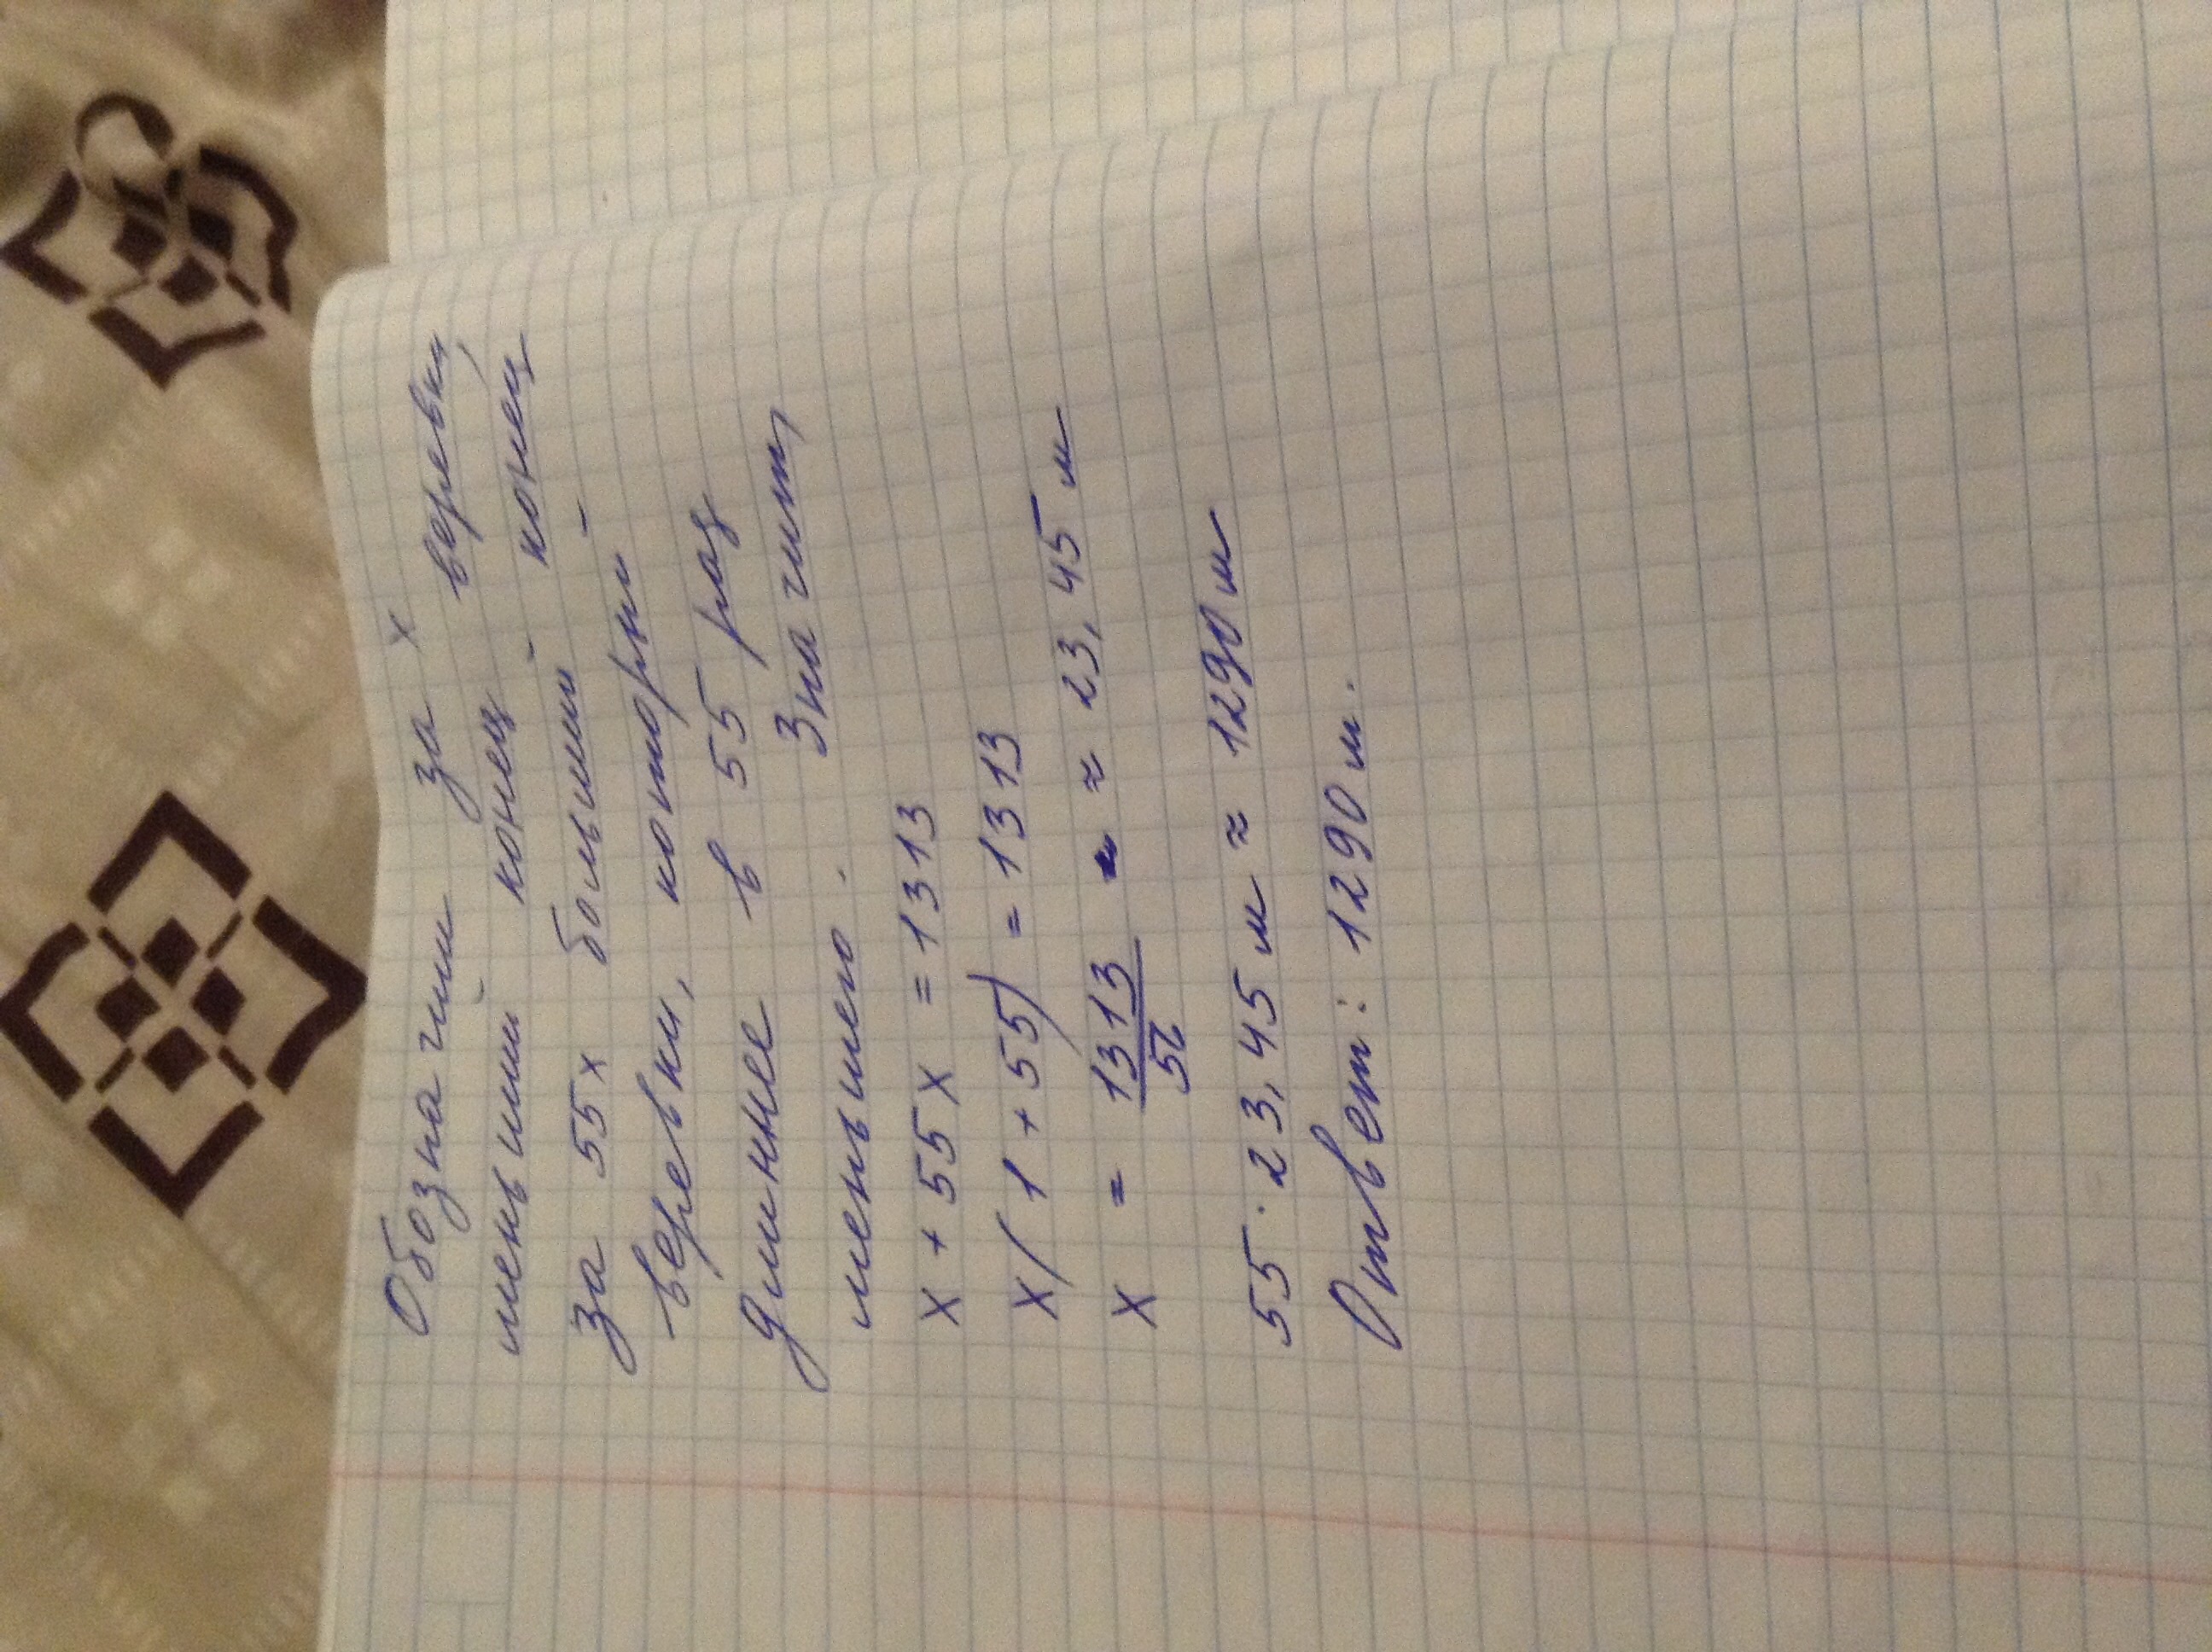 Обозначим за х
меньший конец веревки,
за 55х больший конец
веревки, который
длиннее в 55 раз
меньшего. Значит,
х + 55х = 1313
х(1 + 55) = 1313
х = 1313/56 ≈ 23,45 м
55 · 23,45 м ≈ 1290 м
Ответ: 1290 м.